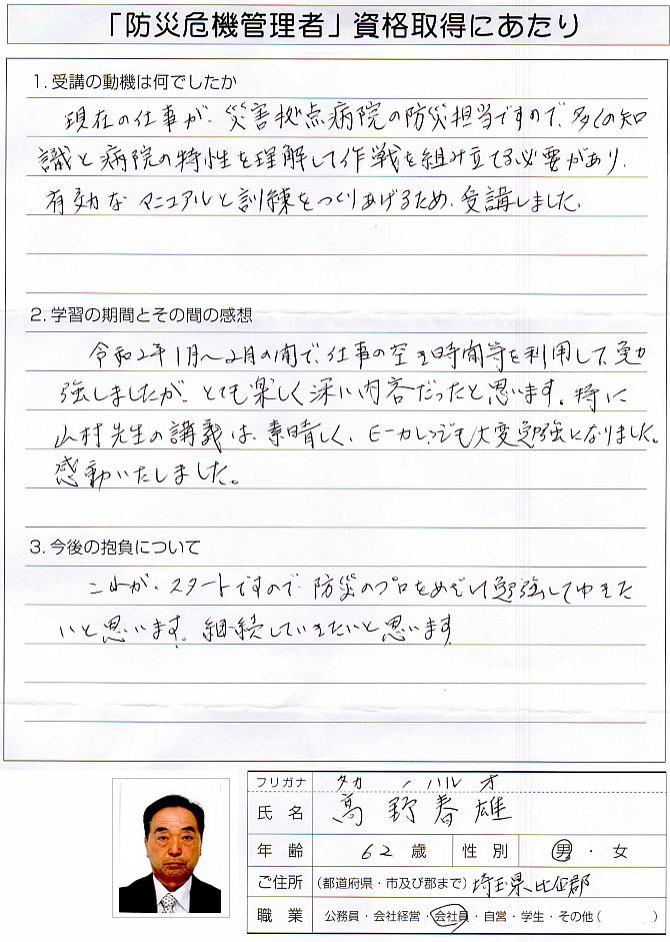 「防災危機管理者」資格取得にあたり
1. 受講の動機は何でしたか
現在の仕事が、災害拠点病院の防災担当ですので、多くの知
識と病院の特性を理解して作戦を組み立てる必要があり、
有効なマニュアルと訓練をつくりあげるため、受講しました。
2. 学習の期間とその間の感想
令和2年1月～2月の間で、仕事の空き時間等を利用して、勉
強しましたが、とても楽しく深い内容だったと思います。特に
山村先生の講義は、素晴しく、Eーカレッジも大変勉強になりました。
感動いたしました。
3. 今後の抱負について
これが、スタートですので、防災のプロをめざして勉強してゆきた
いと思います。継続していきたいと思います
フリガナ タカノ ハルオ
氏名 高野春雄
年齢 62歳 性別 男・女
ご住所 (都道府県・市及び郡まで) 埼玉県比企郡
職業 公務員・会社経営・会社員・自営・学生・その他( )